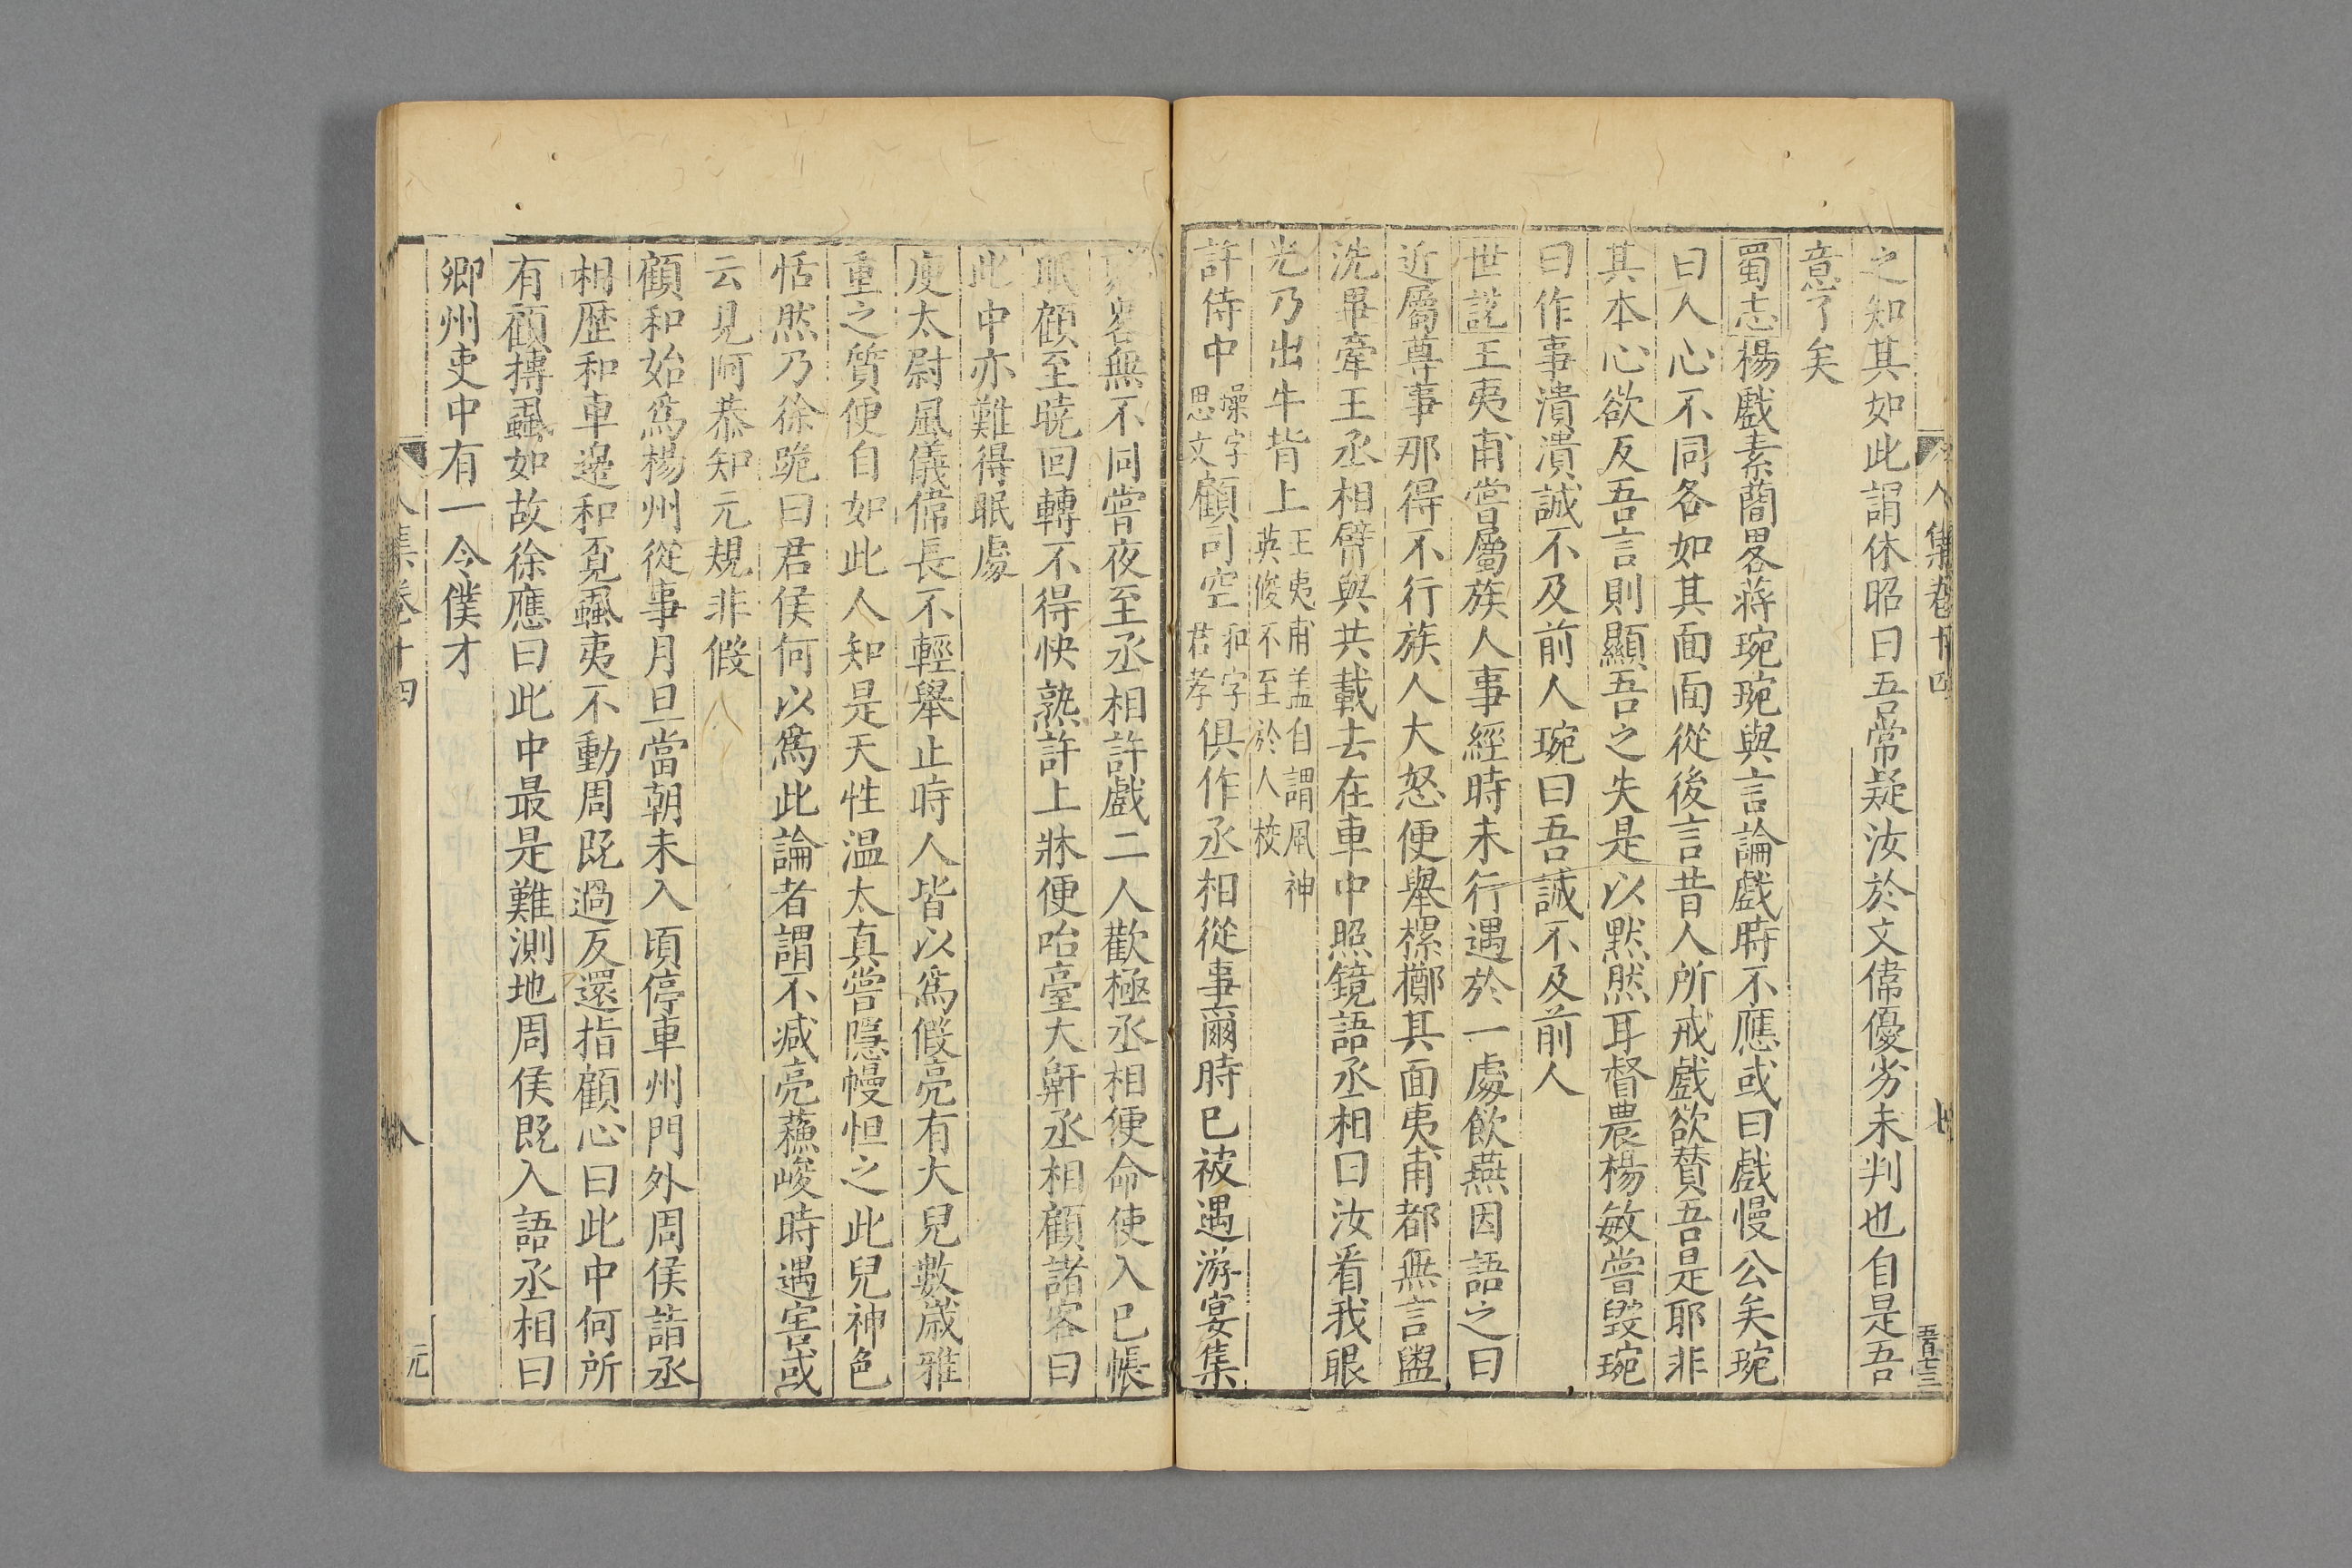 人集卷十四
七
五百七三
之知其如此謂休昭曰吾常疑汝於文偉優劣未判也自是吾
意了矣
蜀志楊戲素簡畧蔣琬琬與言論戲時不應或曰戲慢公矣琬
曰人心不同各如其面面從後言昔人所戒戲欲贊吾是耶非
其本心欲反吾言則顯吾之失是以黙然耳督農楊敏嘗毀琬
曰作事潰潰誠不及前人琬曰吾誠不及前人
世說王夷甫嘗屬族人事經時未行遇於一處飲燕因語之曰
近屬尊事那得不行族人大怒便舉樏擲其面夷甫都無言盥
洗畢牽王丞相臂與共載去在車中照鏡語丞相曰汝看我眼
光乃出牛背上王夷甫盖自謂風神英俊不至於人校
許侍中璪字思文顧司空和字君孝俱作丞相從事爾時巳被遇游宴集
畧無不同嘗夜至丞相許戲二人歡極丞相便命使入巳帳
眠顧至曉回轉不得快熟許上牀便咍臺大鼾丞相顧諸客曰
此中亦難得眠處
庾太尉風儀偉長不輕舉止時人皆以爲假亮有大兒數歲雅
重之質便自如此人知是天性温太真嘗隱幔怛之此兒神色
恬然乃徐跪曰君侯何以爲此論者謂不减亮蘓峻時遇害或
云見阿恭知元規非假
顧和始爲楊州從事月旦當朝未入頃停車州門外周侯詣丞
相歴和車邊和覓蝨夷不動周旣過反還指顧心曰此中何所
有顧摶蝨如故徐應曰此中最是難測地周侯旣入語丞相曰
卿州吏中有一令僕才
人集卷十四
八
元